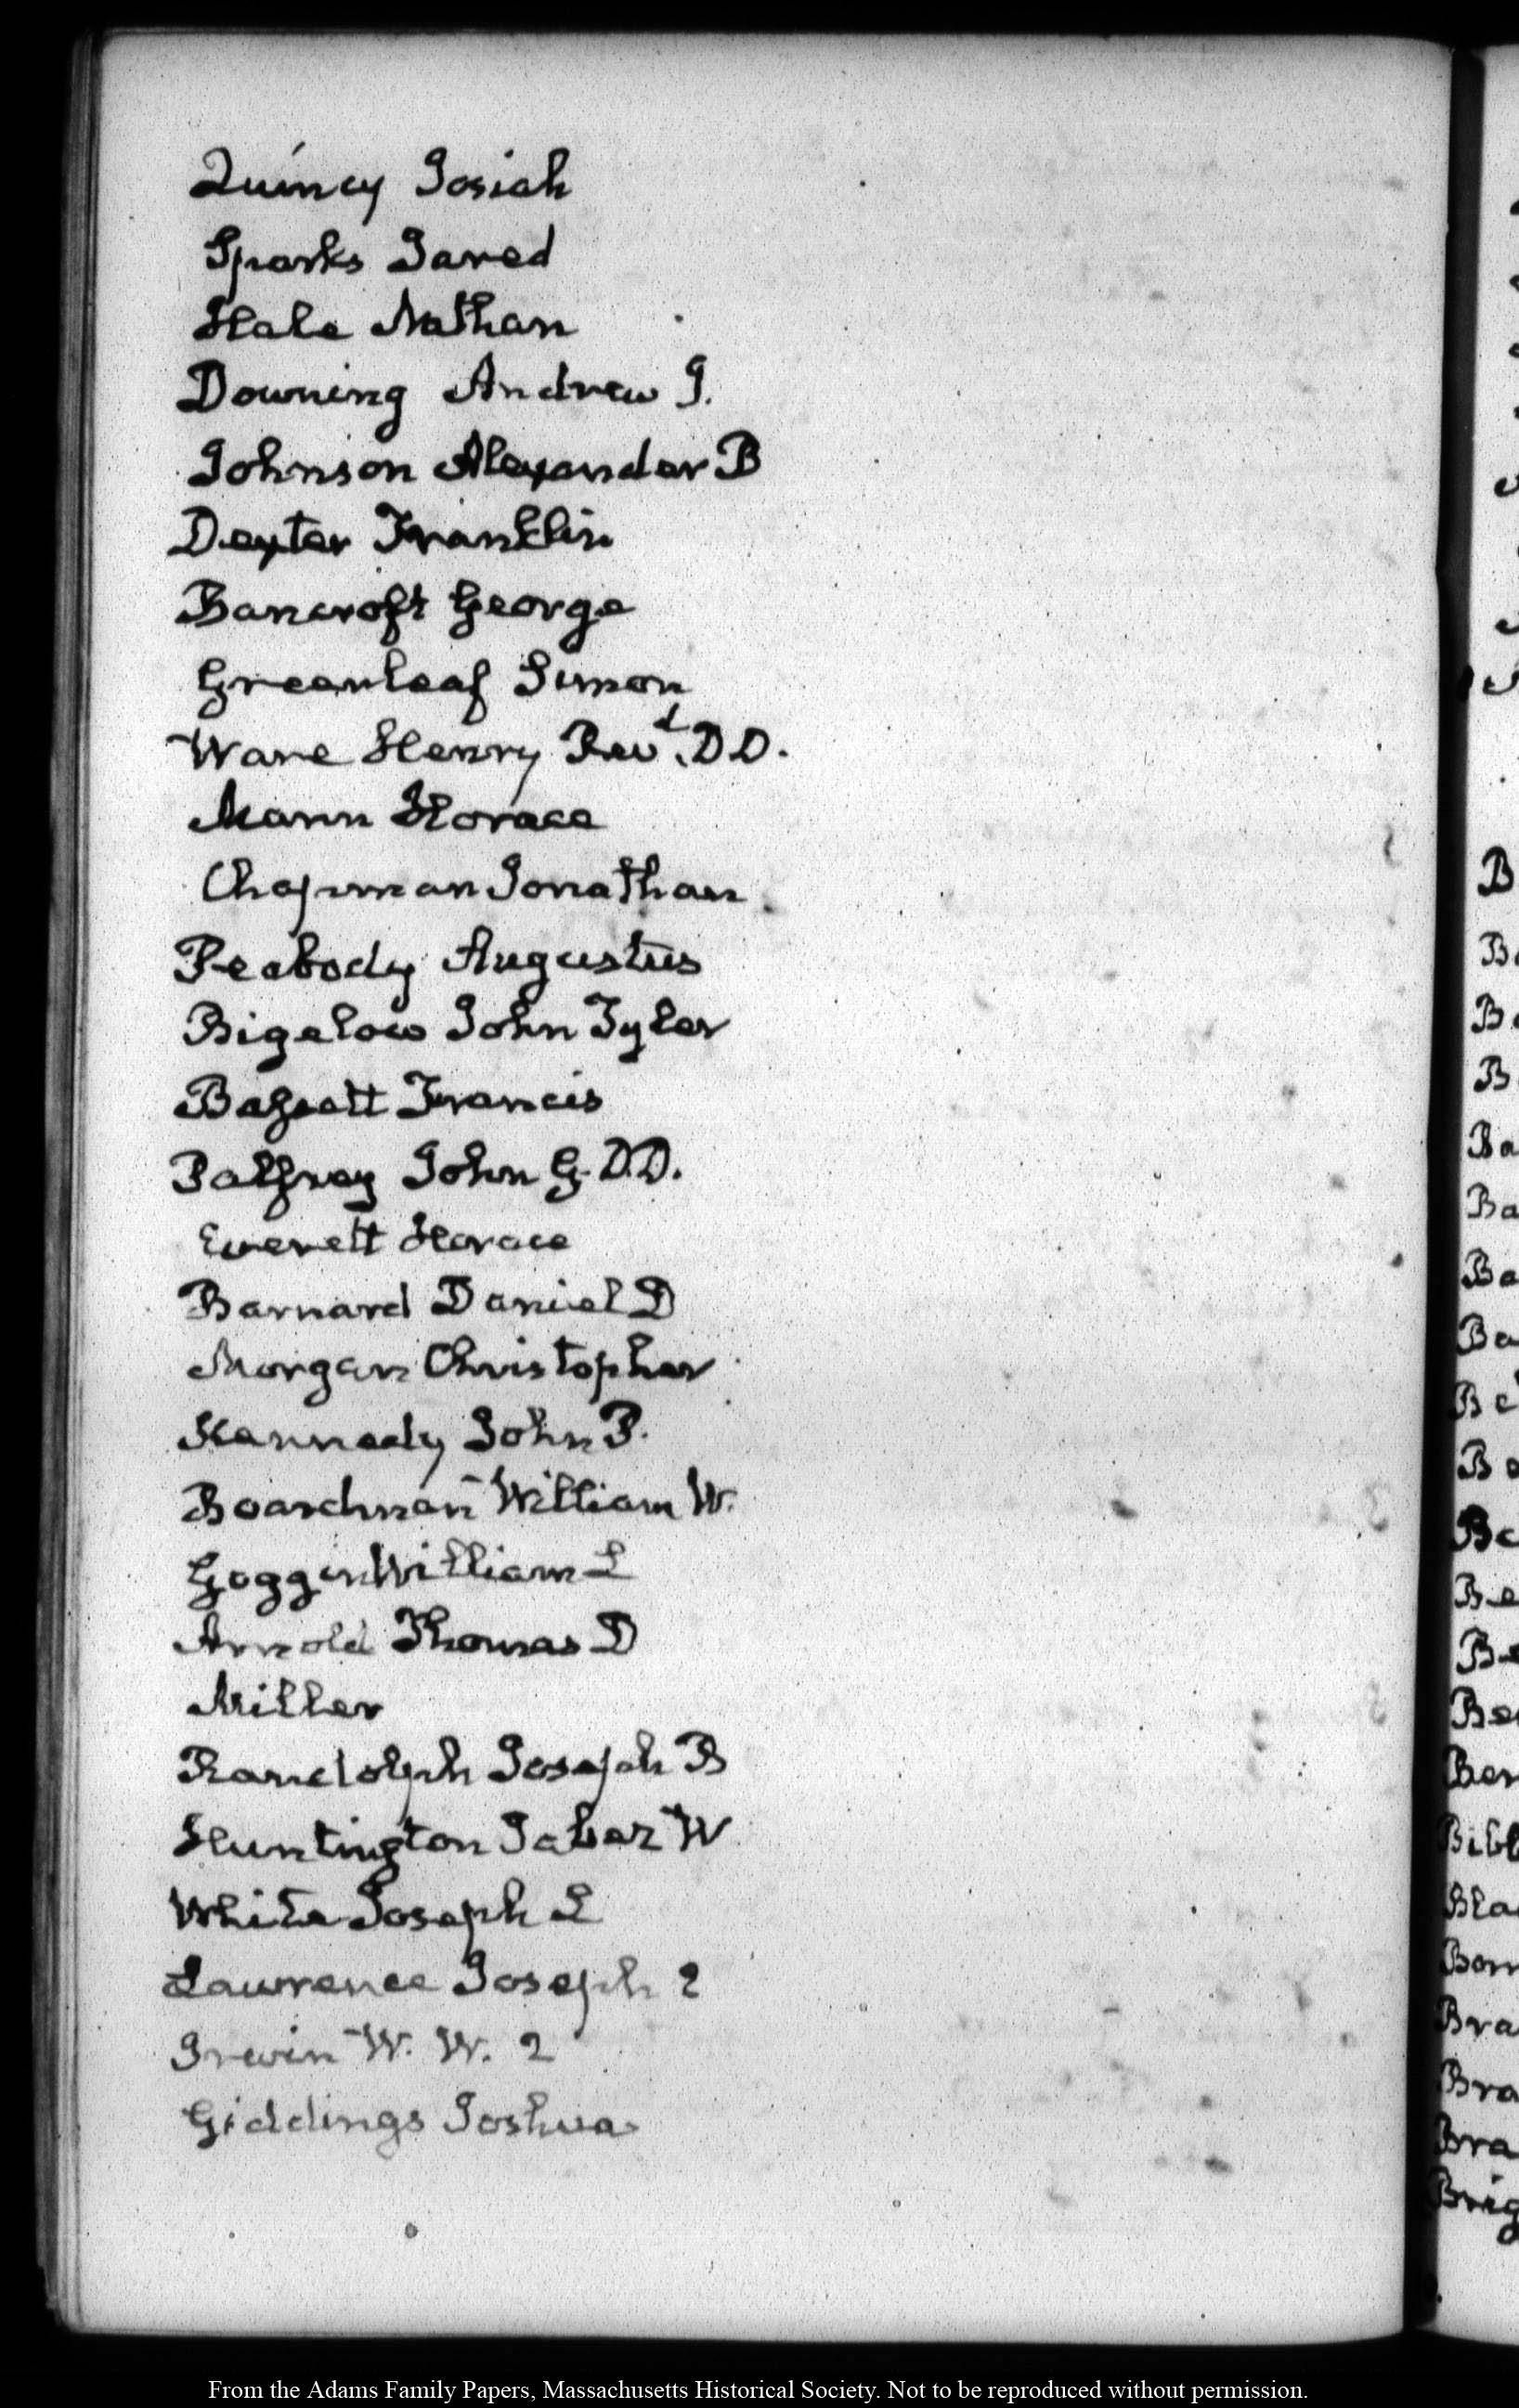 Quincy Josiah
Sparks Jared
Hale Nathan
Downing Andrew J.
Johnson Alexander B
Dexter Franklin
Bancroft George
Greenleaf Simon
Ware Henry Revd. D D.
Mann Horace
Chapman Jonathan
Peabody Augustus
Bigelow John Tyler
Bassett Francis
Palfrey John G. D.D.
Everett Horace
Barnard Daniel D
Morgan Christopher
Kennedy John P.
Boardman William W.
Goggin William L
Arnold Thomas D
Miller
Randolph Joseph B
Huntington Jabez W
White Joseph L
Lawrence Joseph 2
Irwin W. W. 2
Giddings Joshua
B
B
B
B
Ba
Ba
Ba
Ba
Be
B
Be
Be
Be
Be
Ber
Bibl
Bla
Bon
Bra
Bra
Bra
Brig
From the Adams Family Papers, Massachusetts Historical Society. Not to be reproduced without permission.